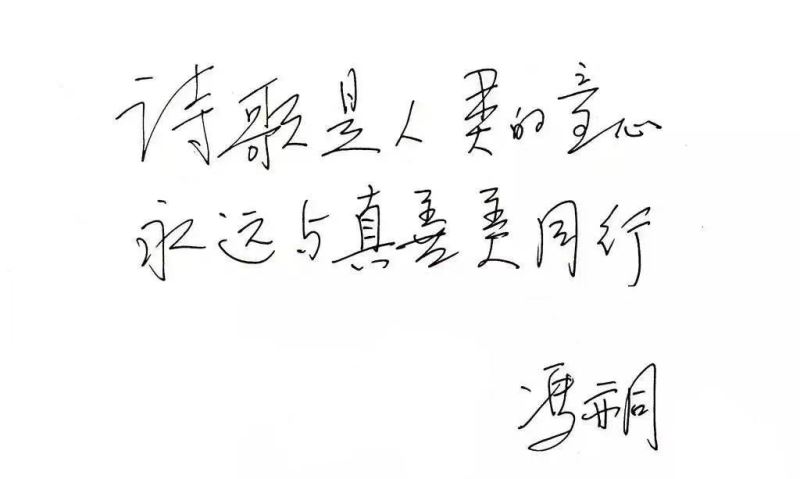 诗歌是人类的童心
永远与真善美同行
冯亦同